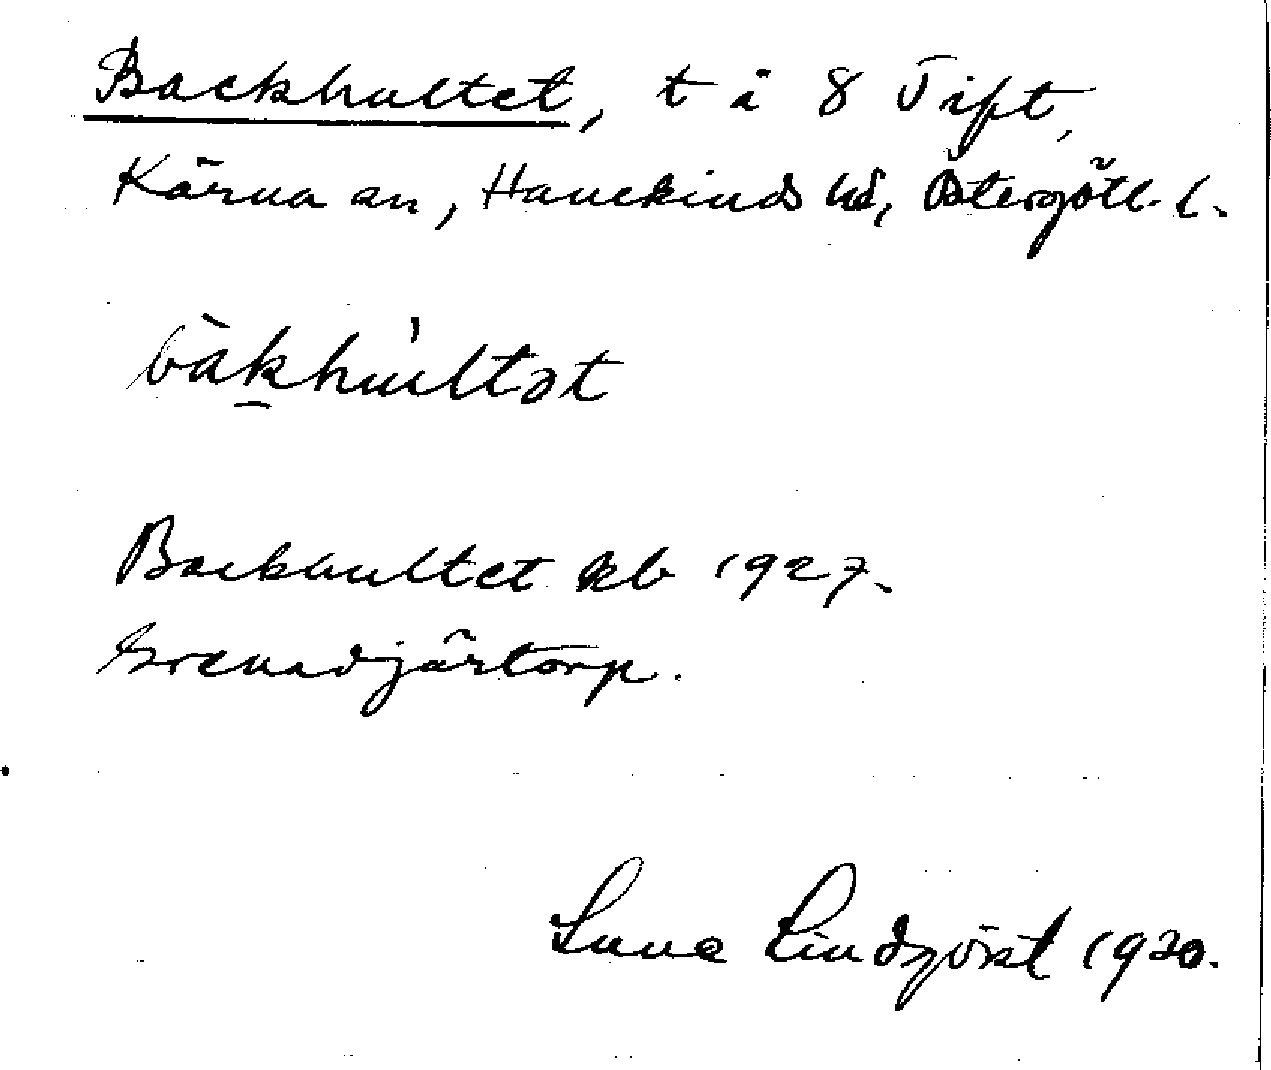 Backhultet, t i 8 Tift,
Kärna sn, Hanekinds hd, Östergötl. l.
bàkhúltət
Backhultet kb 1927.
Grenadjärtorp.
Sune Lindqvist 1930.